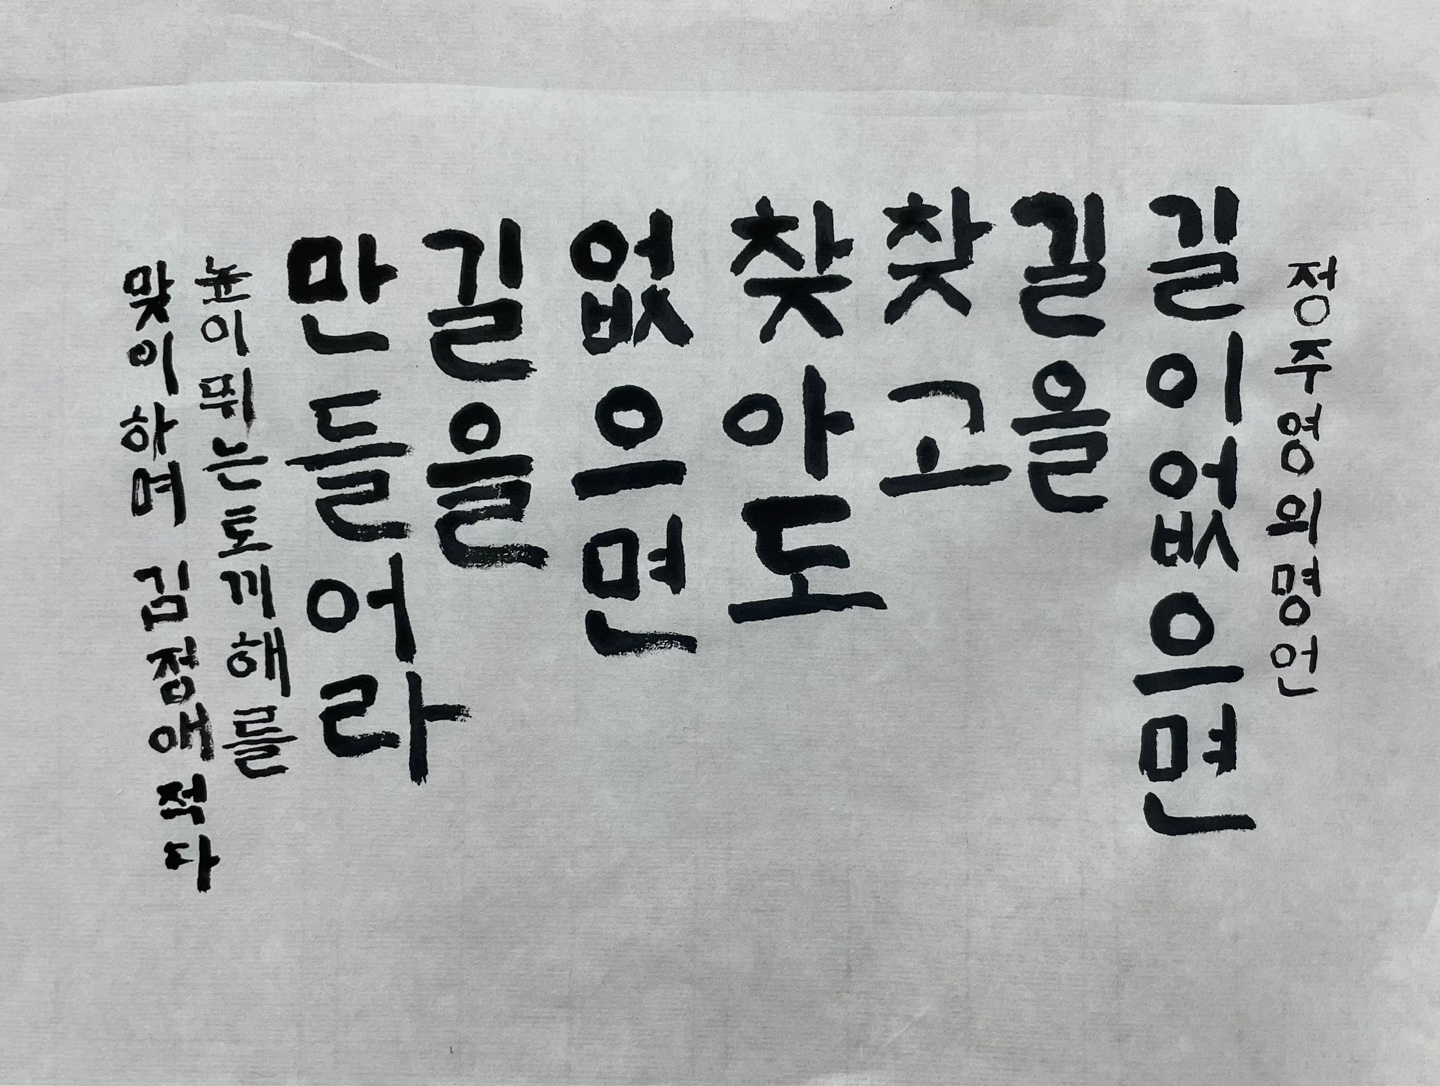 정주영의명언
길이없으면
길을
찾고
찾아도
없으면
길을
만들어라
높이뛰는토끼해를
맞이하며 김정애적다